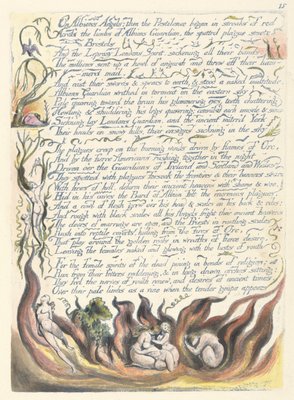 15
On Albions Angels; then the Pestilence began in streaks of red
Across the limbs of Albions Guardian, the spotted plague smote
Bristols
And the Leprosy Londons Spirit, sickening all their bands:
The millions sent up a howl of anguish and threw off their
hammerd mail,
And cast their swords & spears to earth, & stood a naked multitude.
Albions Guardian writhed in torment on the eastern sky
Pale quivring toward the brain his glimmering eyes, teeth chattering
Howling & shuddering his legs quivering; convuls'd each muscle & sinew
Sick'ning lay Londons Guardian, and the ancient miter'd York
Their heads on snowy hills, their ensigns sick'ning in the sky
The plagues creep on the burning winds driven by flames of Orc,
And by the fierce Americans rushing together in the night
Driven o'er the Guardians of Ireland and Scotland and Wales
They spotted with plagues forsook the frontiers & their banners seard
With fires of hell, deform their ancient heavens with shame & woe.
Hid in his caves the Bard of Albion felt the enormous plagues.
And a cowl of flesh grew o'er his head & scales on his back & ribs;
And rough with black scales all his Angels fright their ancient heavens
The doors of marriage are open, and the Priests in rustling scales
Rush into reptile coverts, hiding from the fires of Orc,
That play around the golden roofs in wreaths of fierce desire,
Leaving the females naked and glowing with the lusts of youth
For the female spirits of the dead pining in bonds of religion;
Run from their fetters reddening, & in long drawn arches sitting:
They feel the nerves of youth renew, and desires of ancient times,
Over their pale limbs as a vine when the tender grape appears